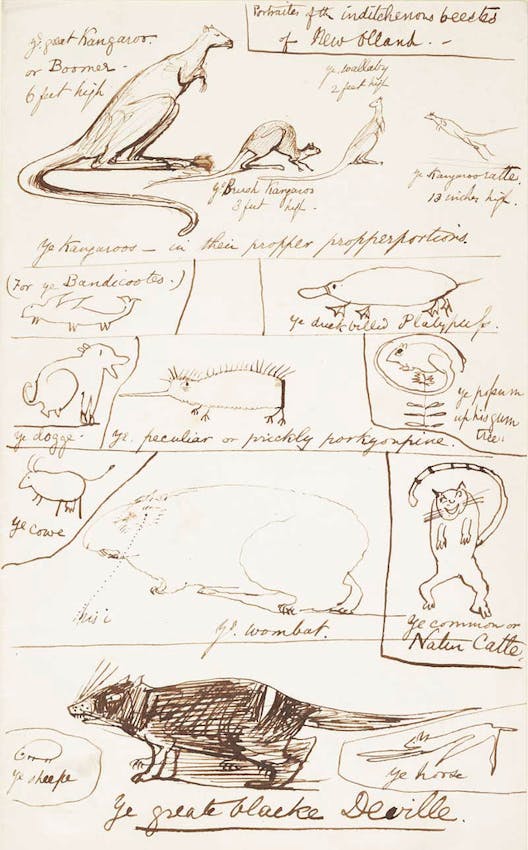 Portraites of th inditchenous beestes
of New Olland. —
ye great Kangaroo.
or Boomer -
6 feet high
ye wallaby
2 feet high
ye Kangaroo ratte
13 inches high.
ye Brush Kangaroo
3 feet high.
Ye Kangaroos — in their propper propperportions.
(For ye Bandicootes.)
Ye duck billed Platypufs.
ye dogge -
Ye. peculiar or prickly porkyonpine.
ye popum
up his gum
tree.
Ye cowe
his i
Ye. wombat.
Ye common or
Natur Catte
Ye sheepe
Ye horse
Ye greate blacke Deville.